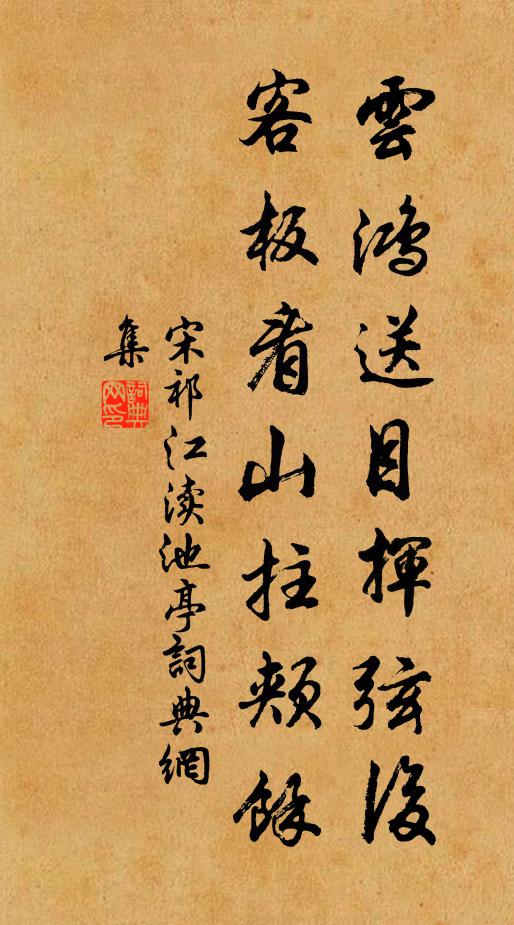 雲鴻送目揮弦後
客板看山拄頰餘
宋祁江渎池亭詞典網
集
詞典網印